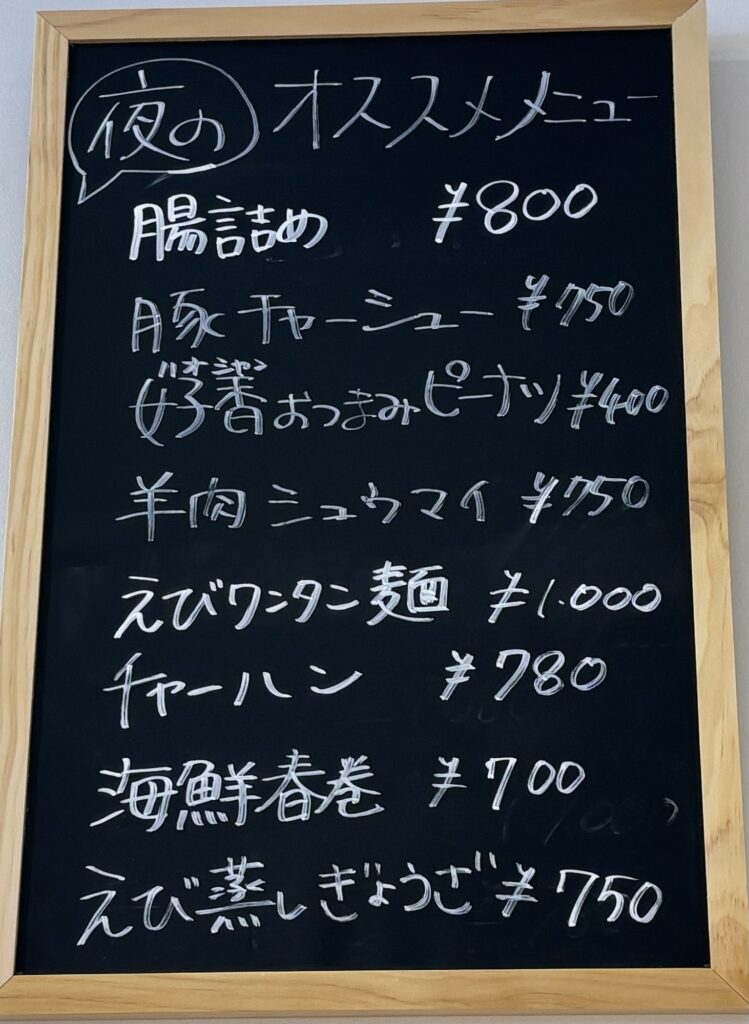 夜の オススメメニュー
腸詰め ¥800
豚チャーシュー ¥750
ハオシャン
好香おつまみピーナツ ¥400
羊肉シュウマイ ¥750
えびワンタン麺 ¥1.000
チャーハン ¥780
海鮮春巻 ¥700
えび蒸しぎょうざ ¥750